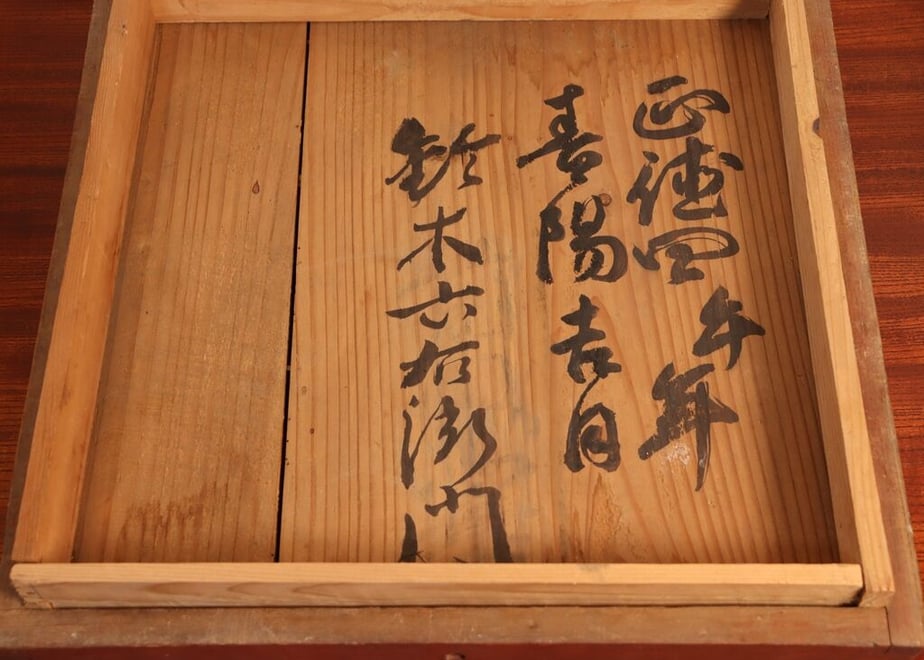 正徳四午年
春陽吉月
鈴木六右衛門